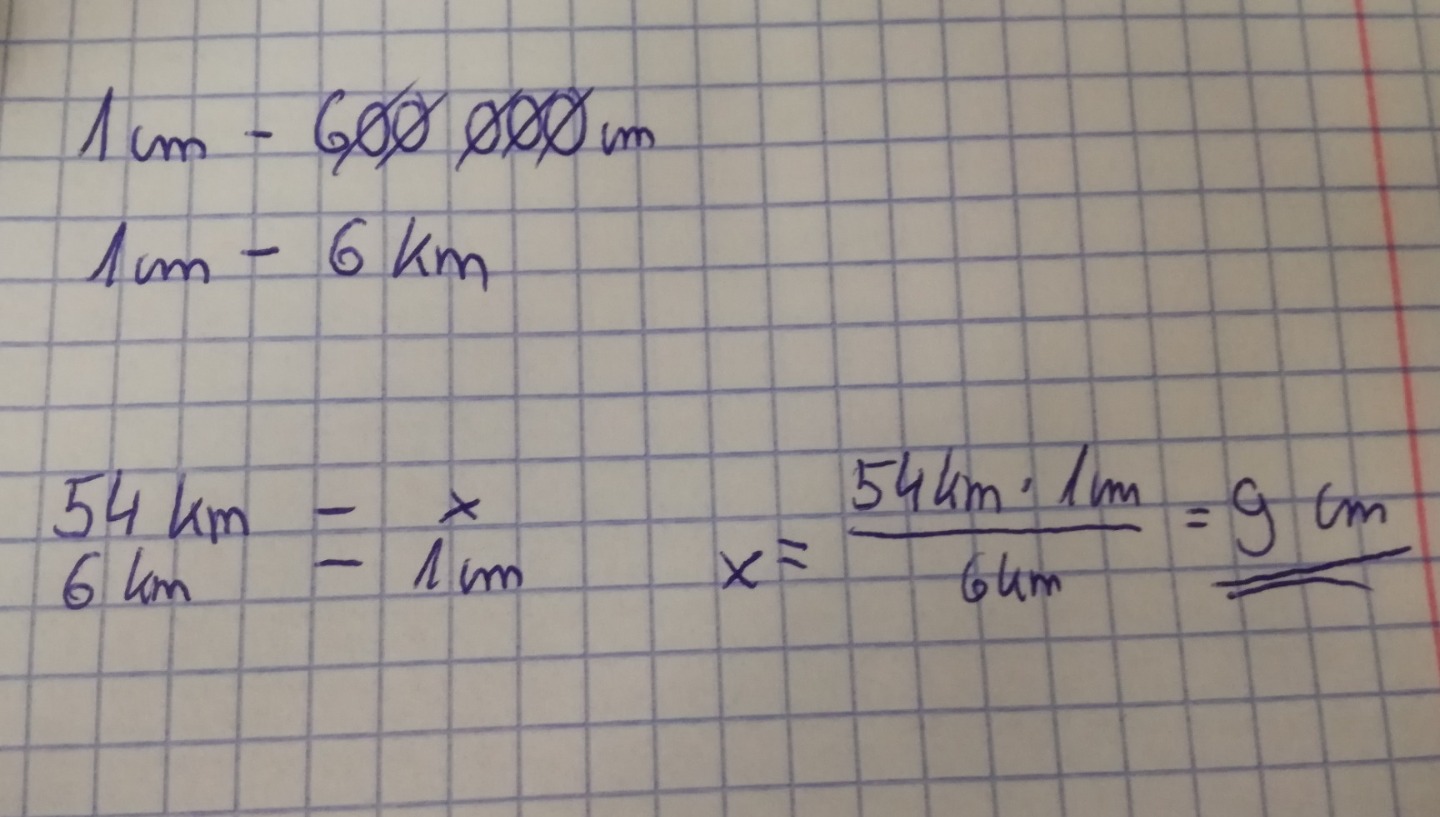 1 cm - 600 000 cm
1 cm - 6 km
54 km - x
6 km - 1 cm
x = 54 km · 1 cm / 6 km = 9 cm